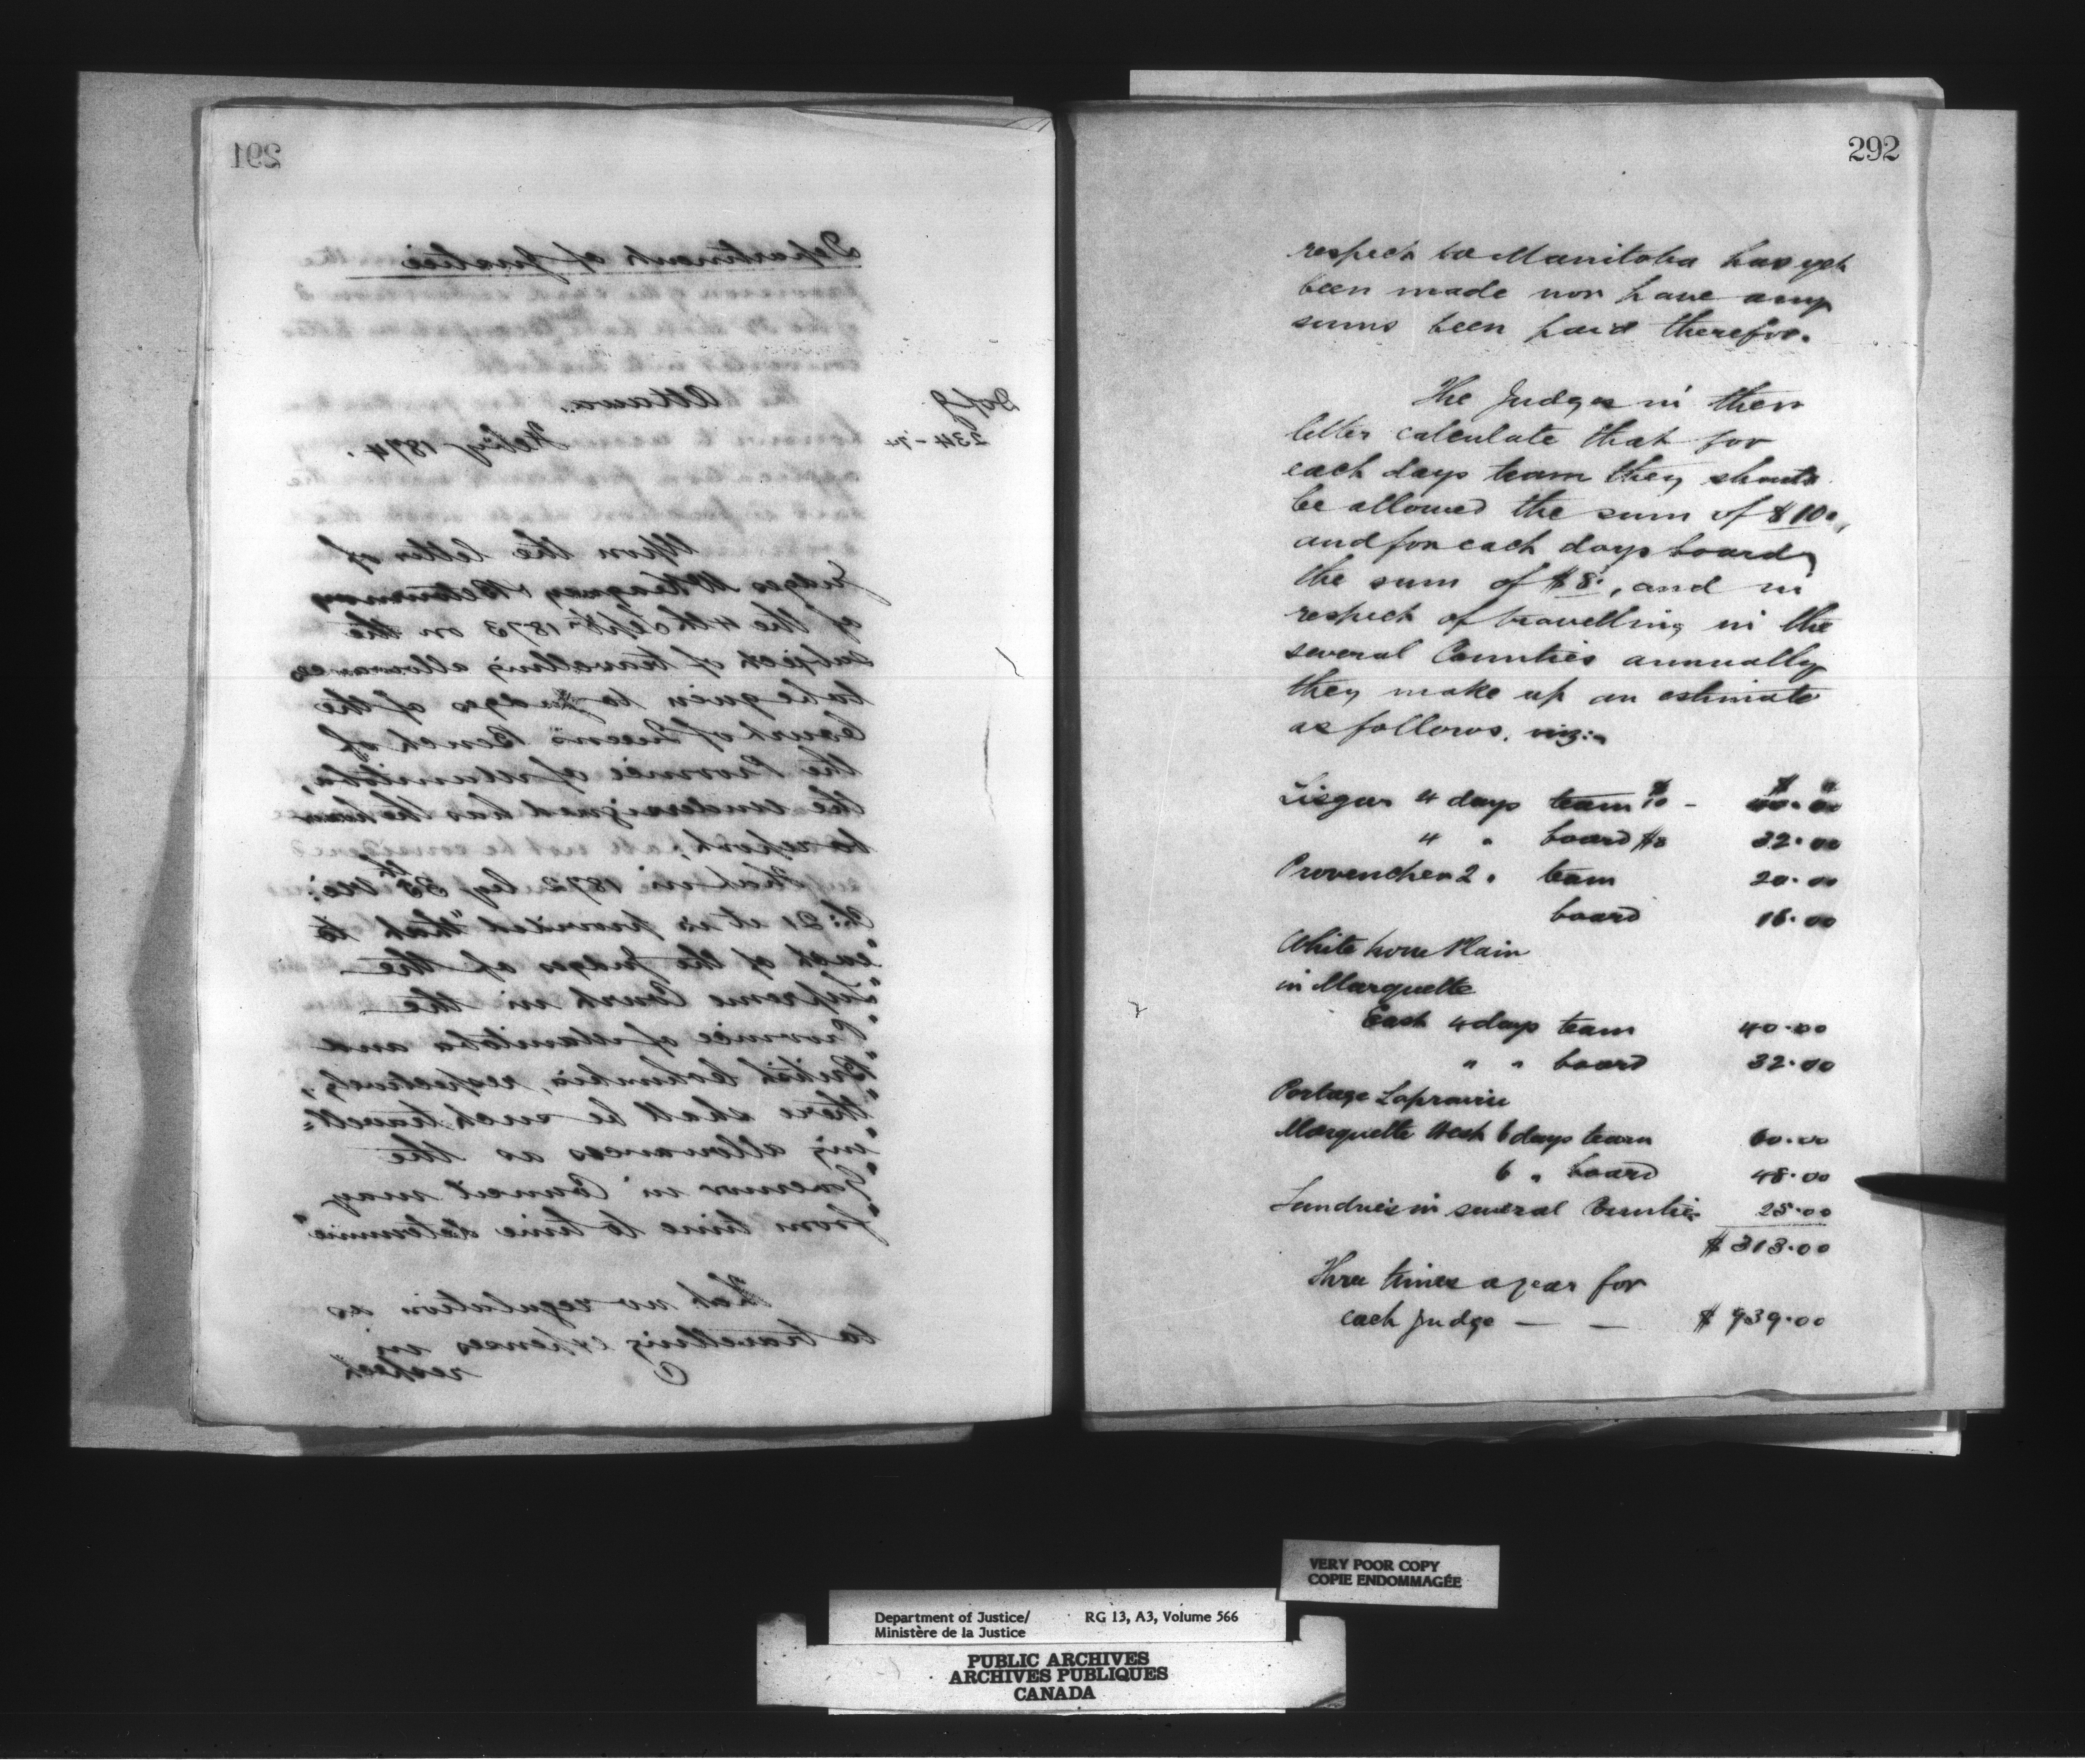 291
Department of Justice
D of J
Ottawa.
234-74
Feby 1874.
Upon the letter of
Judges McKeagney & Betournay
of the 4th Septr 1873 on the
subject of travelling allowances
to be given to Judges of the
Court of Queen's Bench of
the Province of Manitoba,
the undersigned has the honor
to report,
That in 1872 by 35th Vic:
Ch: 21 it is provided "that to
"each of the Judges of the
"Supreme Court in the
"Province of Manitoba and
"British Columbia, respectively,
"there shall be such travell=
"ing allowances as the
"Governor in Council may
"from time to time determine"
That no regulation as
to travelling expenses in
respect
292
respect to Manitoba has yet
been made nor have any
sums been paid therefor.
The Judges in their
letter calculate that for
each days team they should
be allowed the sum of $10.,
and for each days board
the sum of $8., and in
respect of travelling in the
several Counties annually
they make up an estimate
as follows. viz:-
Lisgar 4 days team $10 - $40.00
4 " board $8 32.00
Provencher 2 " team 20.00
board 16.00
White horse Plain
in Marquette
East 4 days team 40.00
" " board 32.00
Portage Laprairie
Marquette West 6 days team 60.00
6 " board 48.00
Sundries in several Counties 25.00
$ 313.00
Three times a year for
each Judge — — $ 939.00
VERY POOR COPY
COPIE ENDOMMAGÉE
Department of Justice/ RG 13, A3, Volume 566
Ministère de la Justice
PUBLIC ARCHIVES
ARCHIVES PUBLIQUES
CANADA